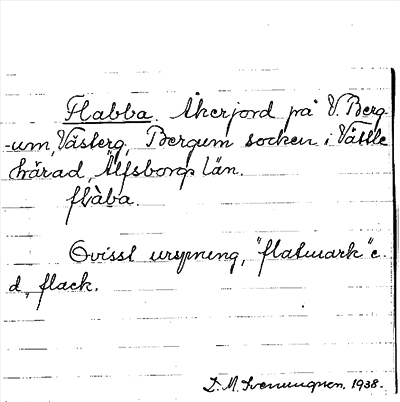 Flabba. Åkerjord på V. Berg-
-um, Västerg, Bergum socken i Vättle
härad, Älfsborgs Län.
flàba.
Ovisst ursprung, "flatmark" e.
d, flack.
D. M. Svenungsen. 1938.